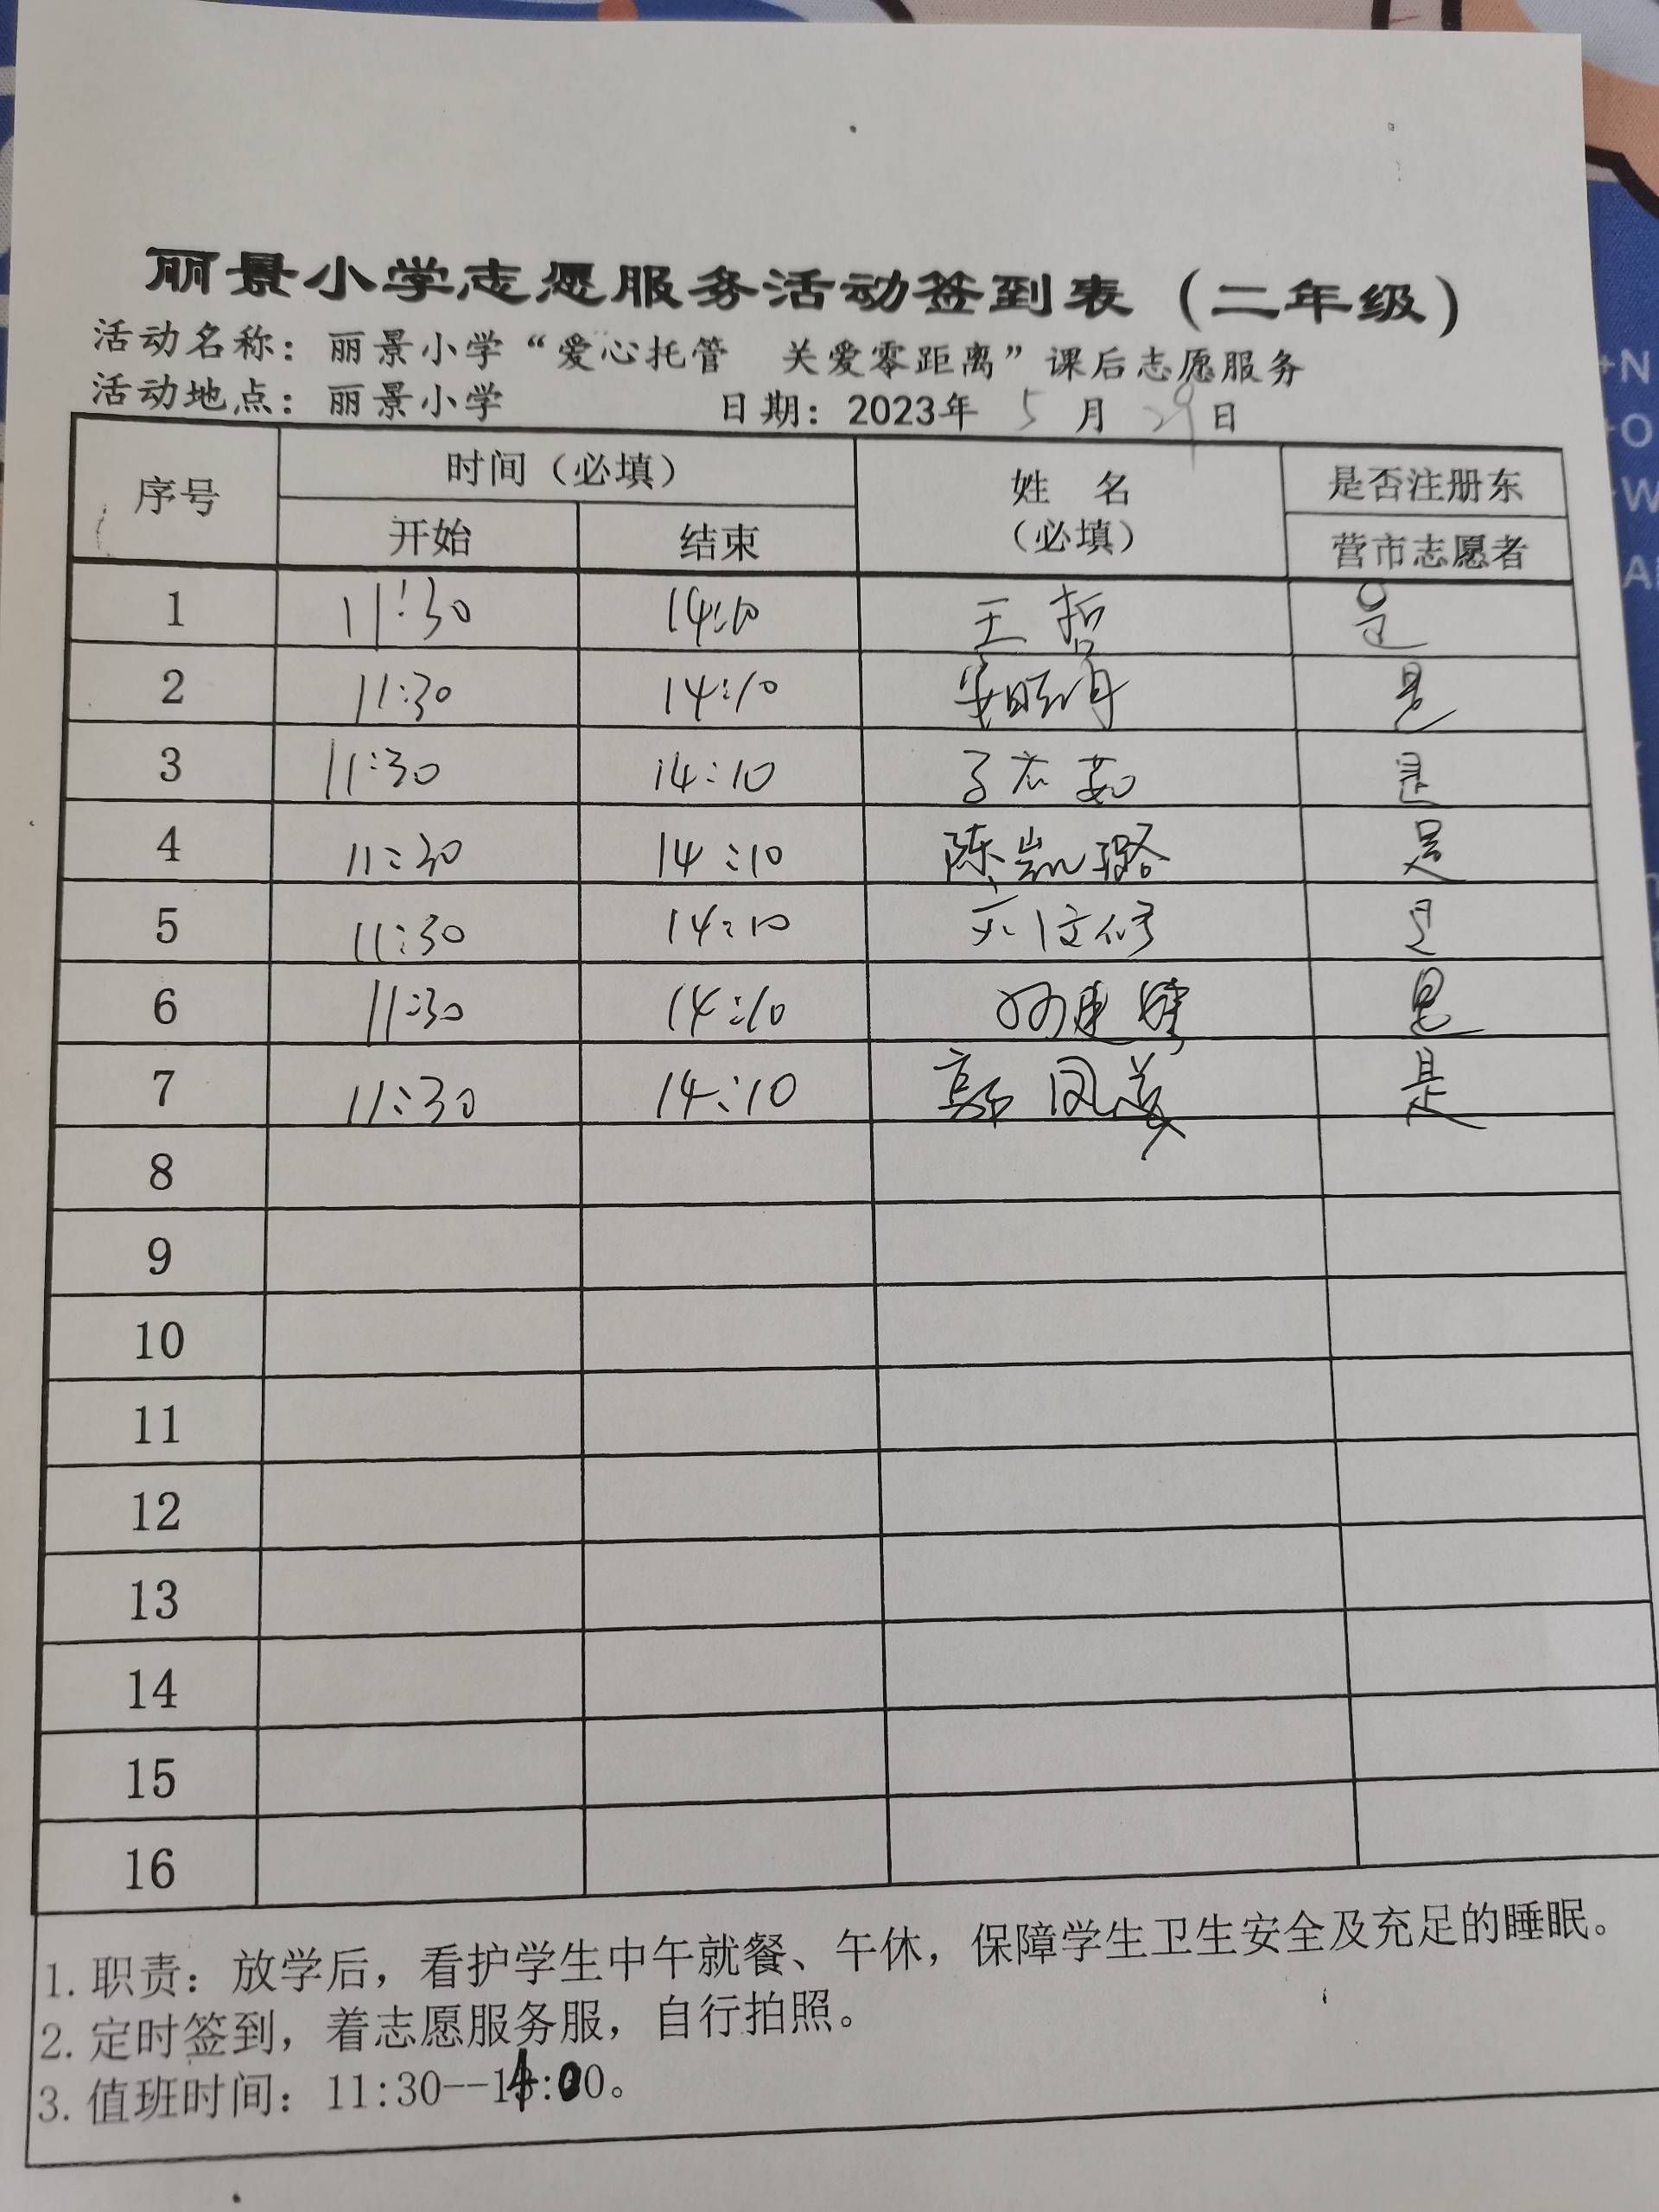 丽景小学志愿服务活动签到表（二年级）
活动名称：丽景小学“爱心托管　关爱零距离”课后志愿服务
活动地点：丽景小学　日期：2023年 5 月 29 日
序号 时间（必填） 姓 名 是否注册东
开始 结束 （必填） 营市志愿者
1 11:30 14:10 王哲 是
2 11:30 14:10 是
3 11:30 14:10 是
4 11:30 14:10 陈凯璐 是
5 11:30 14:10 是
6 11:30 14:10 是
7 11:30 14:10 郭凤美 是
8
9
10
11
12
13
14
15
16
1. 职责：放学后，看护学生中午就餐、午休，保障学生卫生安全及充足的睡眠。
2. 定时签到，着志愿服务服，自行拍照。
3. 值班时间：11:30--14:00。
+N
+O